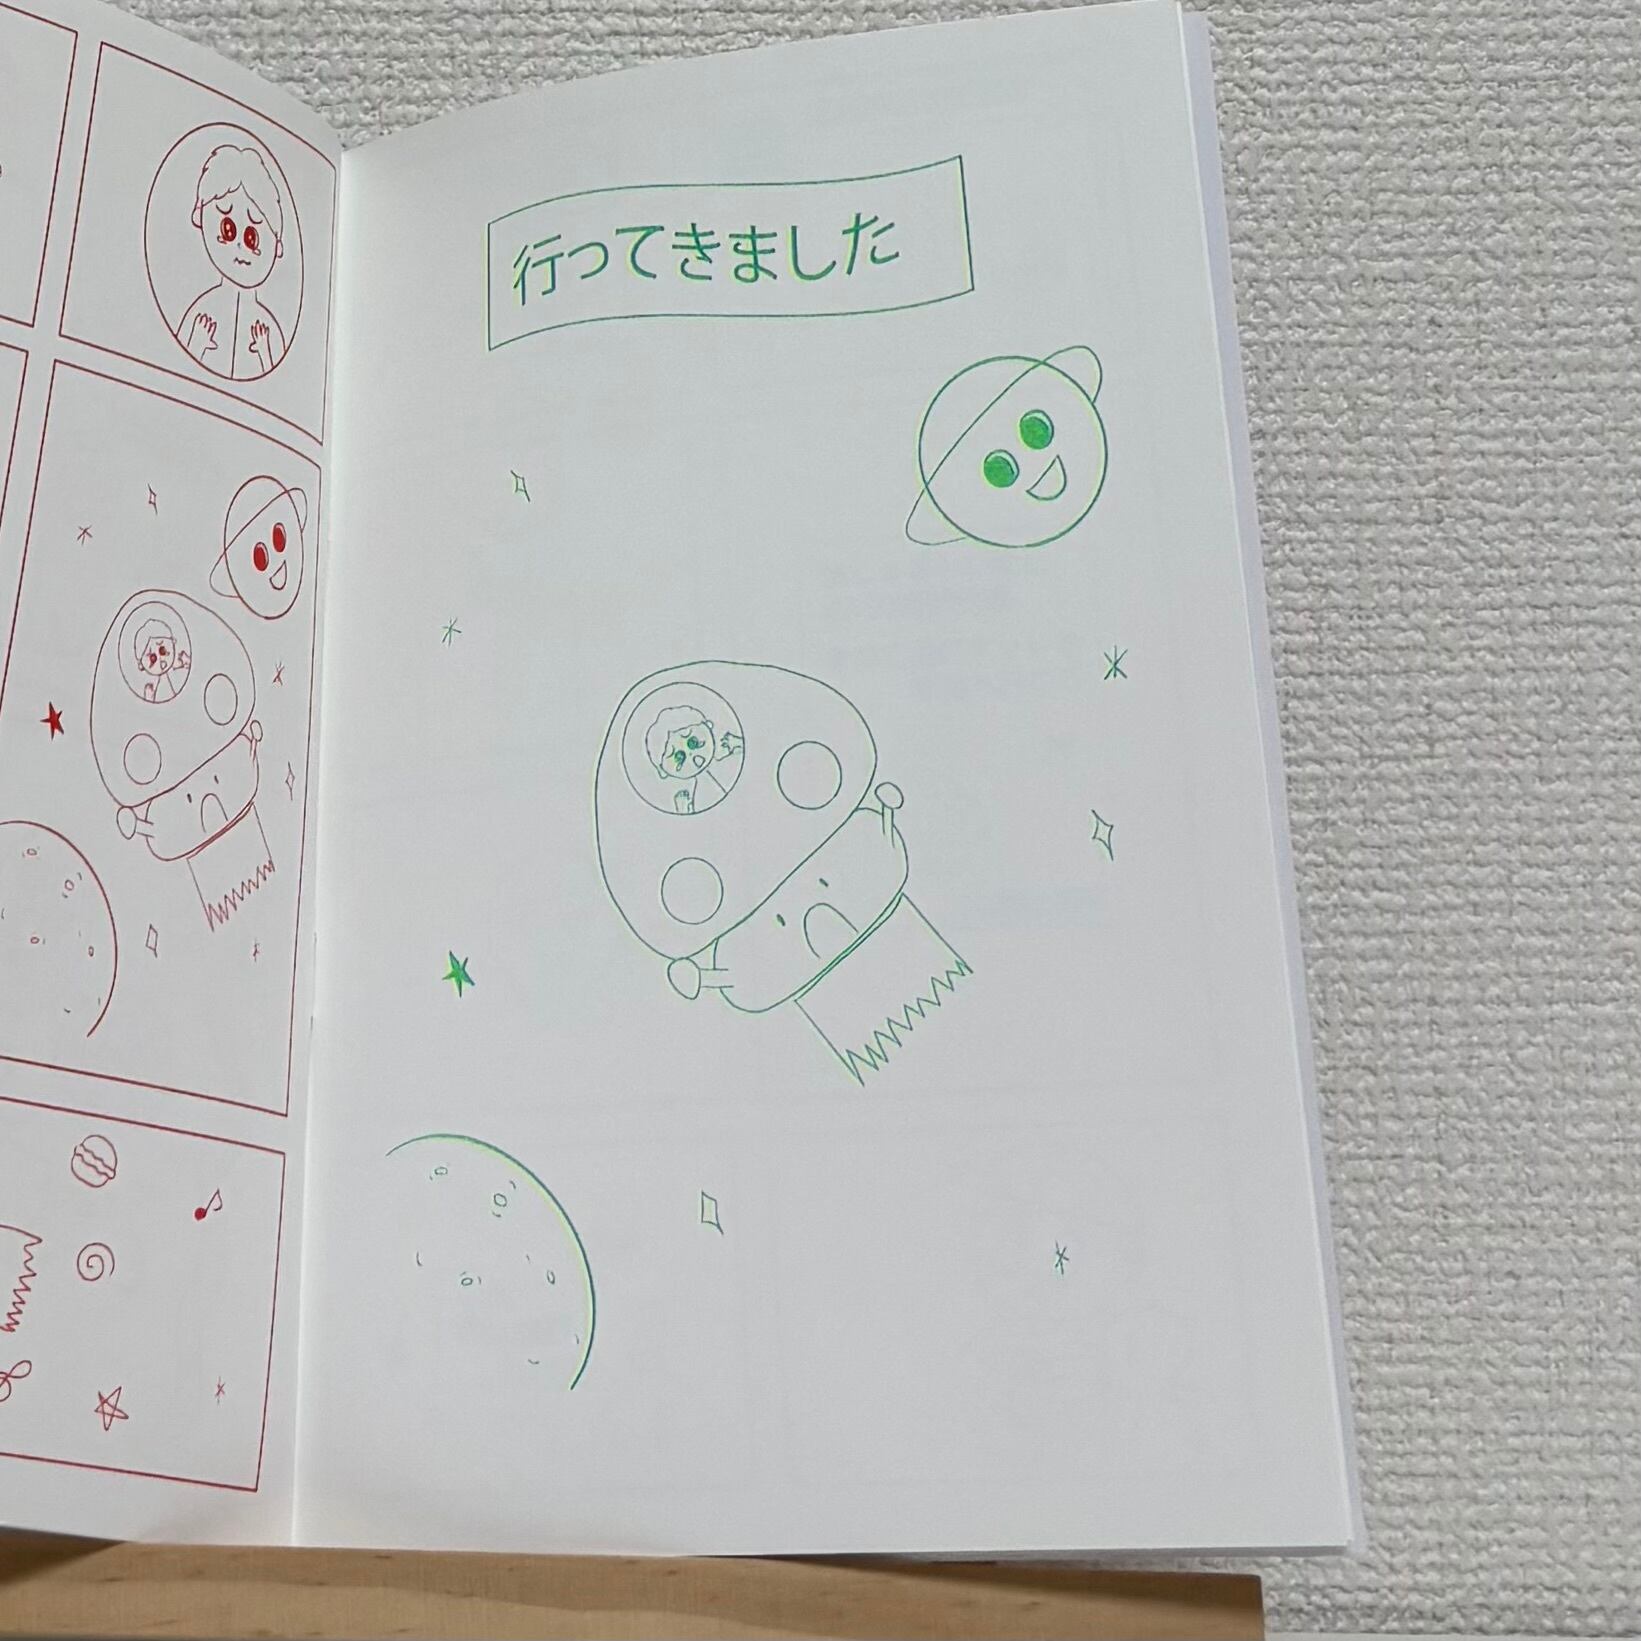 行ってきました